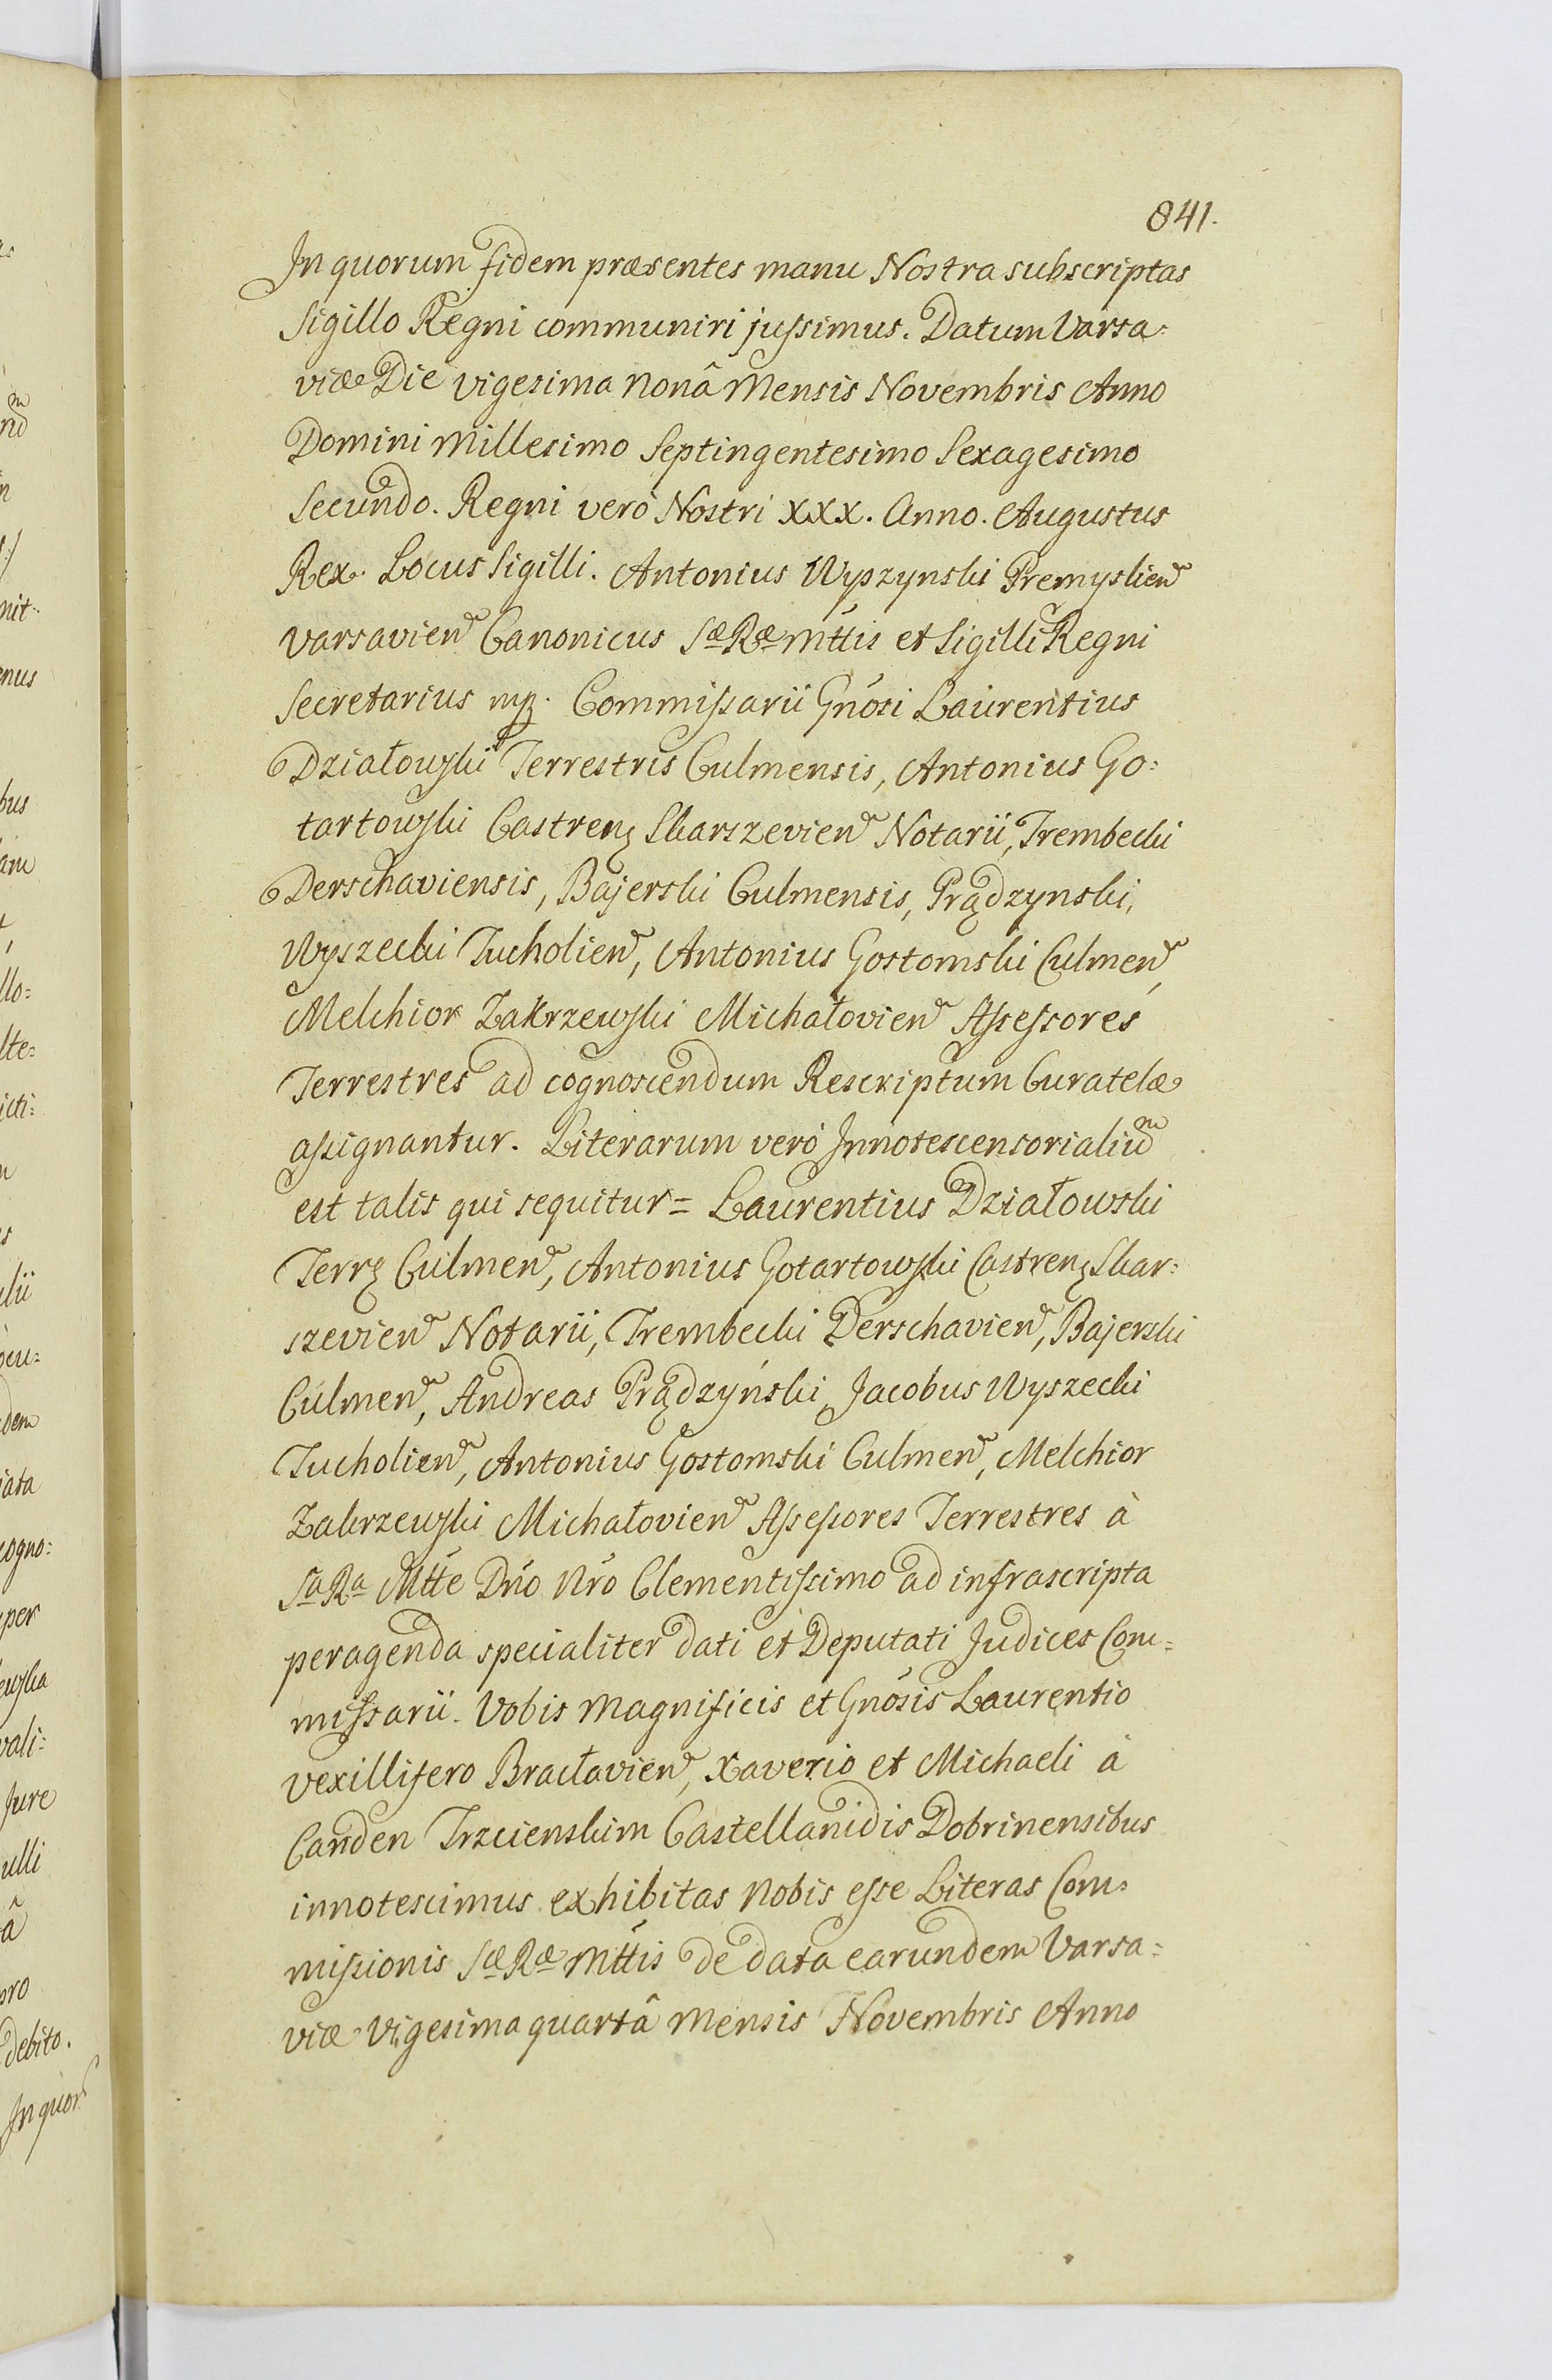 841.
In quorum fidem præsentes manu Nostra subscriptas
Sigillo Regni communiri jussimus. Datum Varsa=
viæ Die vigesima nonâ Mensis Novembris Anno
Domini Millesimo Septingentesimo Sexagesimo
Secundo. Regni verò Nostri XXX. Anno. Augustus
Rex. Locus Sigilli. Antonius Wyszynski Premyslien
Varsavien Canonicus Sæ Ræ Mttis et Sigilli Regni
Secretarius mp. Commissarii Gnosi Laurentius
Działowski Terrestris Culmensis, Antonius Go=
tartowski Castren Skarszevien Notarii, Trembecki
Derschaviensis, Bajerski Culmensis, Prądzynski,
Wyszecki Tucholien, Antonius Gostomski Culmen,
Melchior Zakrzewski Michałovien Assessores
Terrestres ad cognoscendum Rescriptum Curatelæ
assignantur. Literarum verò Innotescensorialium
est talis qui sequitur = Laurentius Działowski
Terr Culmen, Antonius Gotartowski Castren Skar=
szevien Notarii, Trembecki Derschavien, Bajerski
Culmen, Andreas Prądzyński, Jacobus Wyszecki
Tucholien, Antonius Gostomski Culmen, Melchior
Zakrzewski Michałovien Assessores Terrestres à
Sa Ra Mtte Dno Nro Clementissimo ad infrascripta
peragenda specialiter dati et Deputati Judices Com=
missarii. Vobis Magnificis et Gnosis Laurentio
Vexillifero Bracłavien, Xaverio et Michaeli à
Canden Trzcienskim Castellanidis Dobrinensibus
innotescimus exhibitas Nobis esse Literas Com=
missionis Sæ Ræ Mttis de data earundem Varsa=
viæ Vigesima quartâ Mensis Novembris Anno